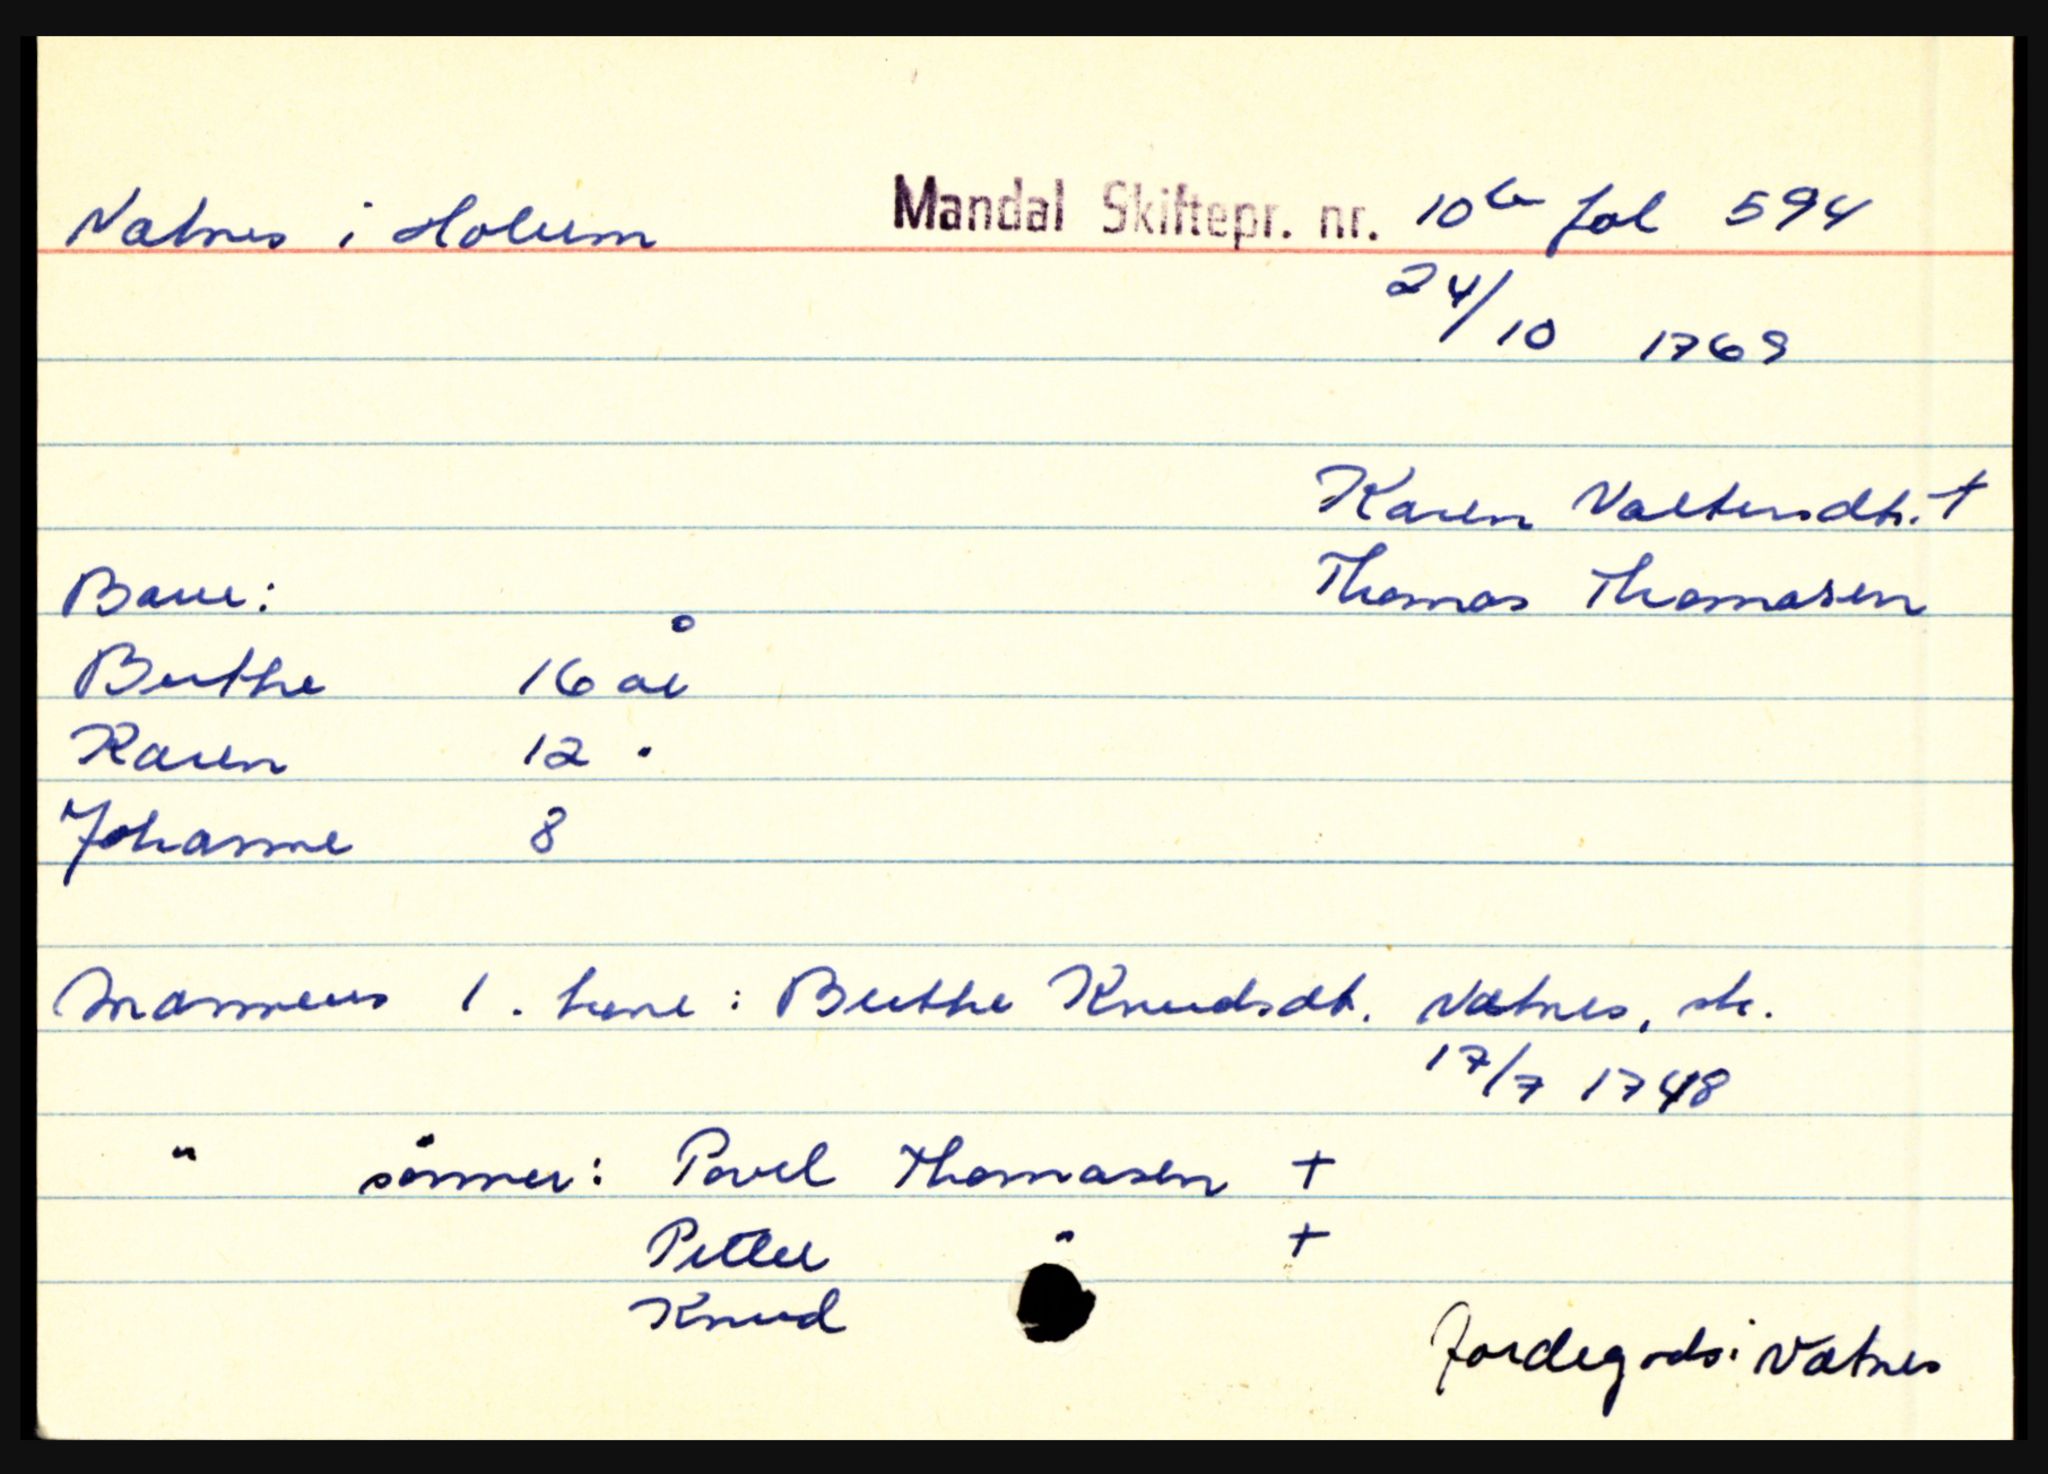 Vatnes i Holum Mandal Skiftepr. nr. 10b fol 594
24/10 1769
Karen Valtersdtr. +
Thomas Thomasen
Barn:
Berthe 16 år
Karen 12 "
Johanne 8
Mannens 1. kone: Berthe Knudsdt. Vatnes, sk.
17/7 1748
" sönner: Povel Thomasen +
Petter " +
Knud
Jordegods i Vatnes